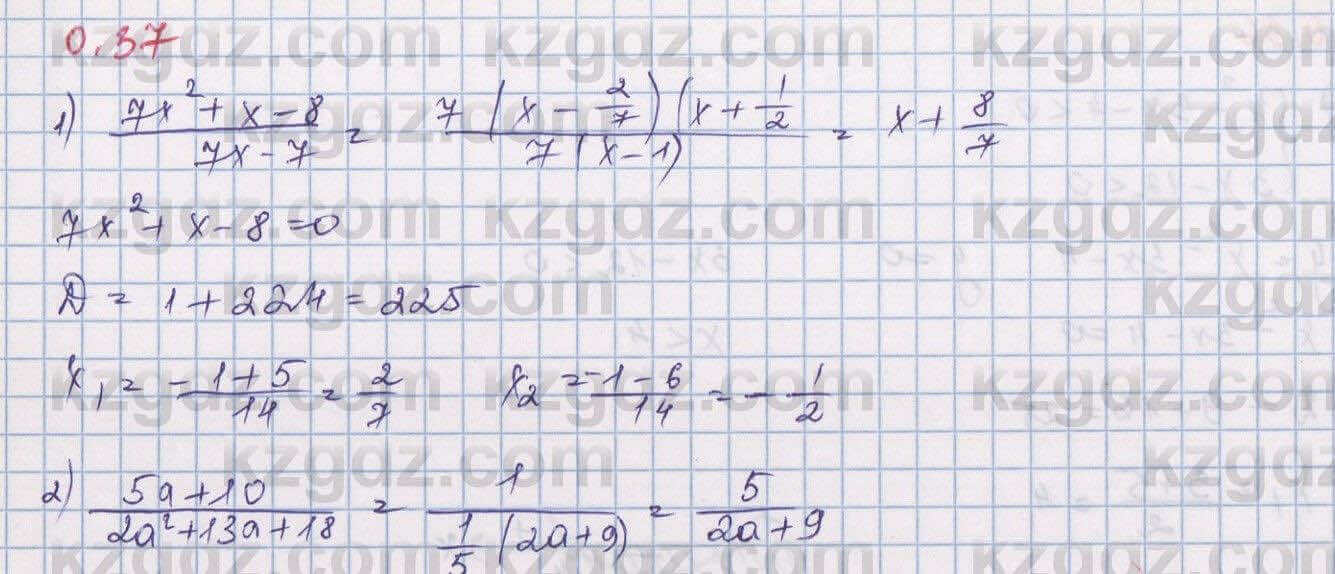 0.37
1) (7x² + x - 8)/(7x - 7) = (7(x - 2/7)(x + 1/2))/(7(x - 1)) = x + 8/7
7x² + x - 8 = 0
D = 1 + 224 = 225
x₁ = (-1 + 5)/14 = 2/7    x₂ = (-1 - 6)/14 = -1/2
2) (5a + 10)/(2a² + 13a + 18) = 1/(1/5 (2a + 9)) = 5/(2a + 9)
kzgdz.com kzgdz.com kzgdz.com
kzgdz.com kzgdz.com
kzgdz.com kzgdz.com kzgdz.com
kzgdz.com kzgdz.com
kzgdz.com kzgdz.com kzgdz.com
kzgdz.com kzgdz.com